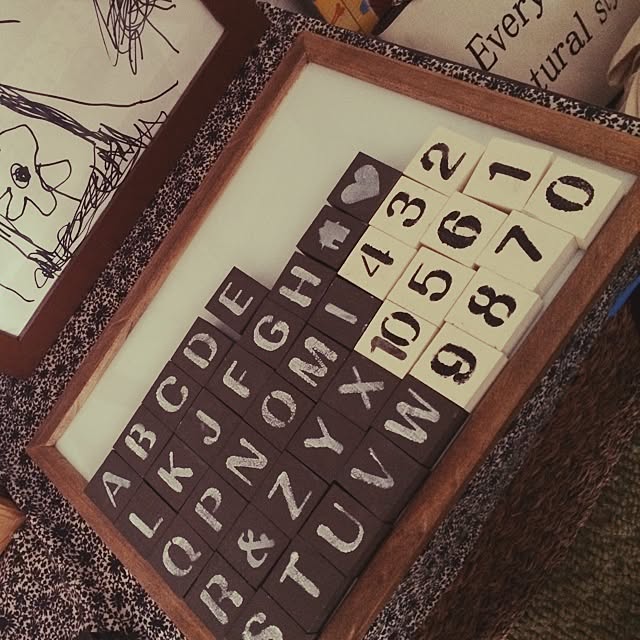 Every
tural st
A B C D E
L K J F G H
Q P N O M I 4 3 2
R & Z Y X 10 5 6 1
S T U V W 9 8 7 0